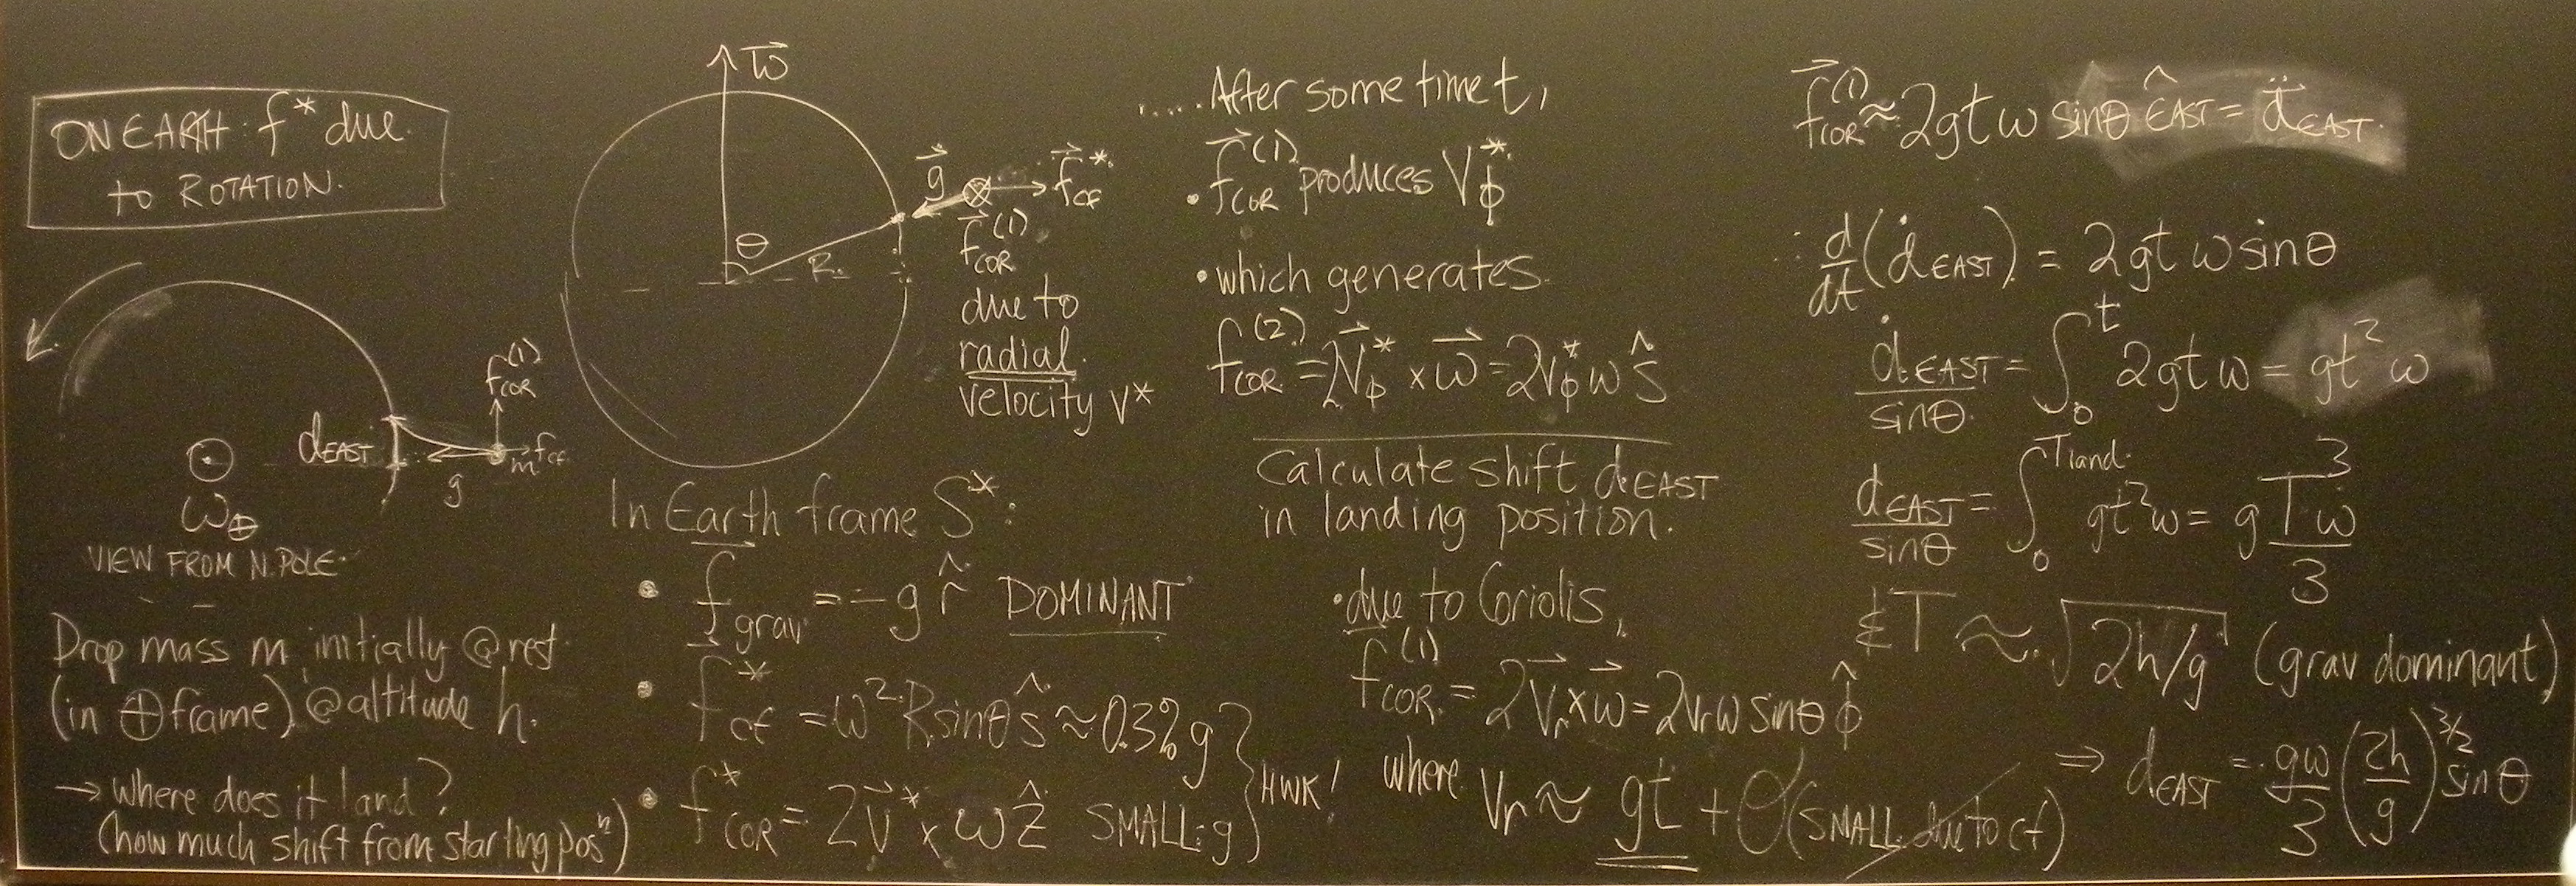 ON EARTH: f* due
to ROTATION.
f⃗_COR^(1)
d_EAST
m
f_CF
g
ω_⊕
VIEW FROM N. POLE.
Drop mass m initially @ rest
(in ⊕ frame) @ altitude h.
→ Where does it land?
(how much shift from starting posⁿ)
ω⃗
θ
R
g⃗
f⃗_CF*
f⃗_COR^(1)
due to
radial
velocity v*
In Earth frame S*:
• f⃗_grav = -g r̂ DOMINANT
• f⃗_CF* = ω² R sinθ ŝ ≈ 0.3% g
• f*_COR = 2v⃗* × ω ẑ SMALL: g
HWK!
..... After some time t,
• f⃗_COR^(1) produces V_ϕ*
• which generates
f_COR^(2) = 2v⃗_ϕ* × ω⃗ = 2v_ϕ* ω ŝ
Calculate shift d_EAST
in landing position.
• due to Coriolis,
f⃗_COR^(1) = 2v⃗_r × ω⃗ = 2v_r ω sinθ ϕ̂
where v_r ~ gt + O(SMALL due to cf)
f⃗_COR^(1) ≈ 2gtω sinθ êAST = d̈_EAST.
∴ d/dt (ḋ_EAST) = 2gt ω sinθ
ḋ_EAST/sinθ = ∫₀^t 2gtω = gt²ω
d_EAST/sinθ = ∫₀^Tland gt²ω = g T³ω/3
& T ≈ √(2h/g) (grav dominant)
⇒ d_EAST = gω/3 (2h/g)^3/2 sinθ